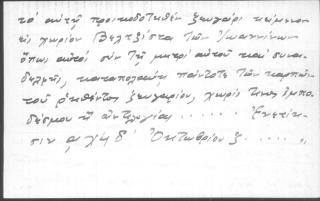 τό αὐτῆς προικοδοτηθέν ζευγάρι κείμενον
εἰς χωρίον Βελτζίστα τῶν Ἰωαννίνων
ὅπως αὐτοί σύν τῇ μητρί αὐτοῦ καί συνα-
δελφῆς, καταπολαύῃ πάντοτε τῶν καρπῶν
τοῦ ῥηθέντος ζευγαρίου, χωρίς τινος ἐμπο-
δίσμου ἤ ἀντιλογίας . . . . . . . Ἐνετίῃ-
σιν αχνδ΄ Ὀκτωβρίου ξ . . . . . . "